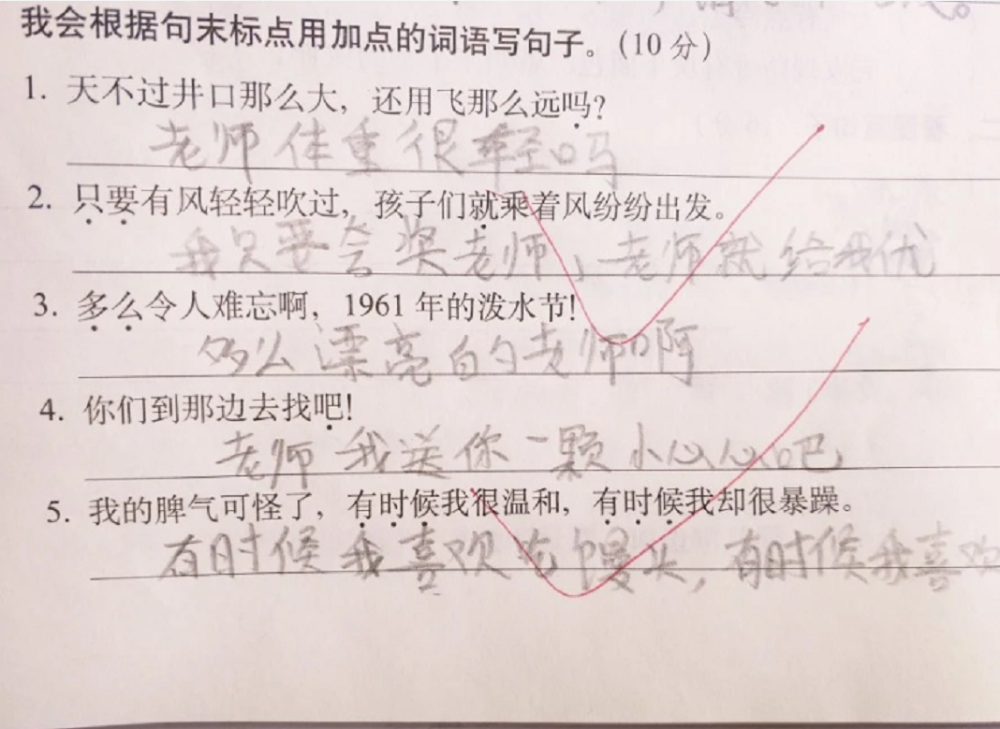 我会根据句末标点用加点的词语写句子。(10分)
1. 天不过井口那么大，还用飞那么远吗?
老师体重很轻吗
2. 只要有风轻轻吹过，孩子们就乘着风纷纷出发。
我只要夸奖老师，老师就给我优
3. 多么令人难忘啊，1961年的泼水节!
多么漂亮的老师啊
4. 你们到那边去找吧!
老师我送你一颗小心心吧
5. 我的脾气可怪了，有时候我很温和，有时候我却很暴躁。
有时候我喜欢吃馒头，有时候我喜欢